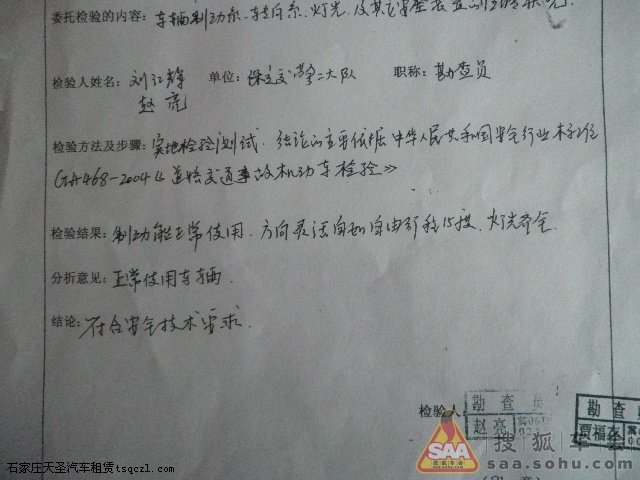 委托检验的内容: 车辆制动系、转向系、灯光、及其它安全装置
检验人姓名: 刘江辉 单位: 保定交警二大队 职称: 勘查员
赵亮
检验方法及步骤: 实地检验测试. 结论的主要依据 中华人民共和国安全行业标准
GA468-2004《道路交通事故机动车检验》
检验结果: 制动能正常使用. 方向灵活自如自由行程15度、灯光齐全.
分析意见: 正常使用车辆.
结论: 符合安全技术要求.
检验人
勘查员
赵亮
勘查
贾福
SAA
搜狐车会
saa.sohu.com
石家庄天圣汽车租赁tsqczl.com